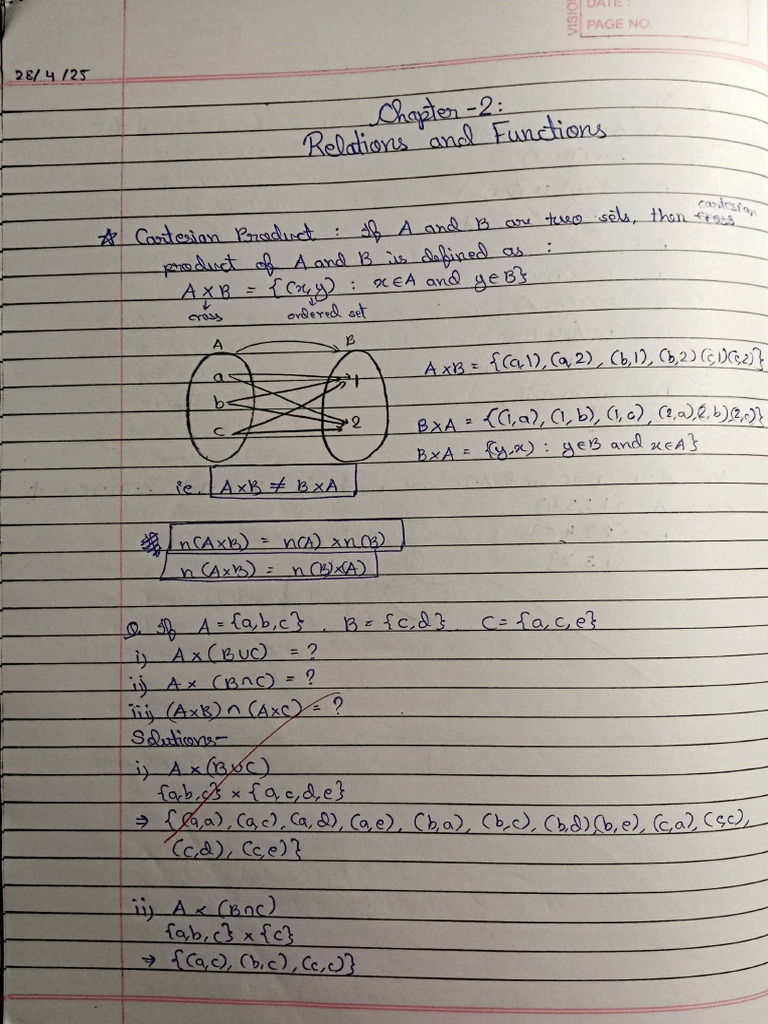 VISION
DATE:
PAGE NO.
28/4/25
Chapter-2:
Relations and Functions
☆ Cartesian Product : If A and B are two sets, then cartesian
product of A and B is defined as :
A×B = {(x,y) : x∈A and y∈B}
cross ordered set
A B
a 1
b
c 2
A×B = {(a,1), (a,2), (b,1), (b,2)(c,1)(c,2)}
B×A = {(1,a), (1,b), (1,c), (2,a),(2,b)(2,c)}
B×A = {y,x) : y∈B and x∈A}
ie. A×B ≠ B×A
n(A×B) = n(A) ×n(B)
n(A×B) = n(B)×(A)
Q If A = {a,b,c} . B = {c,d} C = {a,c,e}
i) A×(B∪C) = ?
ii) A× (B∩C) = ?
iii) (A×B)∩(A×C) = ?
Solutions-
i) A×(B∪C)
{a,b,c} × {a,c,d,e}
⇒ {(a,a), (a,c), (a,d), (a,e), (b,a), (b,c), (b,d)(b,e), (c,a), (c,c),
(c,d), (c,e)}
ii) A×(B∩C)
{a,b,c} × {c}
⇒ {(a,c), (b,c), (c,c)}